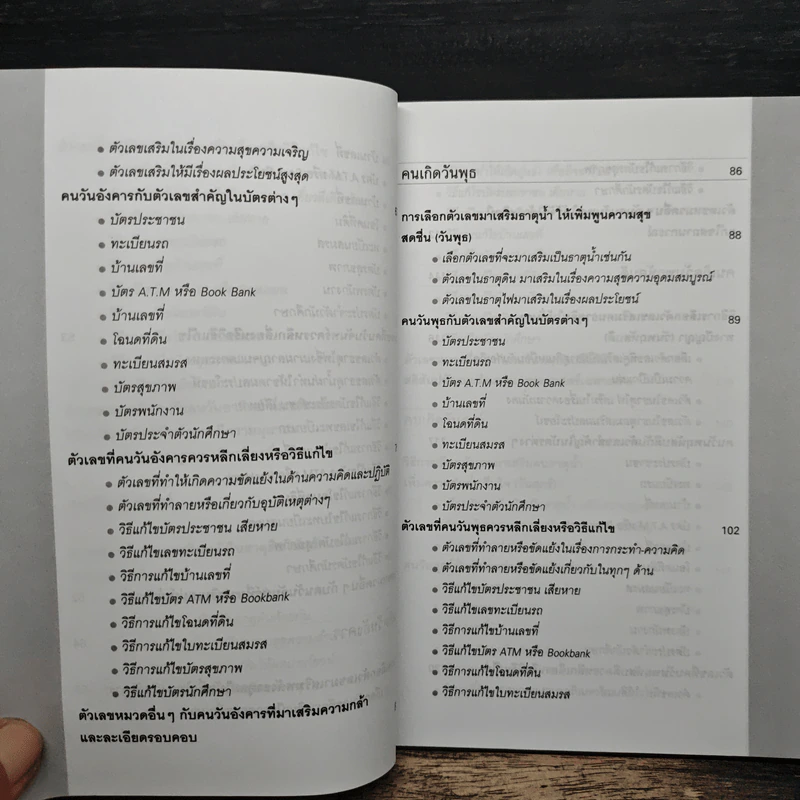 ● ตัวเลขเสริมในเรื่องความสุขความเจริญ
● ตัวเลขเสริมให้มีเรื่องผลประโยชน์สูงสุด
คนวันอังคารกับตัวเลขสำคัญในบัตรต่างๆ
● บัตรประชาชน
● ทะเบียนรถ
● บ้านเลขที่
● บัตร A.T.M หรือ Book Bank
● บ้านเลขที่
● โฉนดที่ดิน
● ทะเบียนสมรส
● บัตรสุขภาพ
● บัตรพนักงาน
● บัตรประจำตัวนักศึกษา
ตัวเลขที่คนวันอังคารควรหลีกเลี่ยงหรือวิธีแก้ไข
● ตัวเลขที่ทำให้เกิดความขัดแย้งในด้านความคิดและปฏิบัติ
● ตัวเลขที่ทำลายหรือเกี่ยวกับอุบัติเหตุต่างๆ
● วิธีแก้ไขบัตรประชาชน เสียหาย
● วิธีแก้ไขเลขทะเบียนรถ
● วิธีการแก้ไขบ้านเลขที่
● วิธีแก้ไขบัตร ATM หรือ Bookbank
● วิธีการแก้ไขโฉนดที่ดิน
● วิธีการแก้ไขใบทะเบียนสมรส
● วิธีการแก้ไขบัตรสุขภาพ
● วิธีแก้ไขบัตรนักศึกษา
ตัวเลขหมวดอื่นๆ กับคนวันอังคารที่มาเสริมความกล้า
และละเอียดรอบคอบ
คนเกิดวันพุธ 86
การเลือกตัวเลขมาเสริมธาตุน้ำ ให้เพิ่มพูนความสุข
สดชื่น (วันพุธ) 88
● เลือกตัวเลขที่จะมาเสริมเป็นธาตุน้ำเช่นกัน
● ตัวเลขในธาตุดิน มาเสริมในเรื่องความสุขความอุดมสมบูรณ์
● ตัวเลขในธาตุไฟมาเสริมในเรื่องผลประโยชน์
คนวันพุธกับตัวเลขสำคัญในบัตรต่างๆ 89
● บัตรประชาชน
● ทะเบียนรถ
● บัตร A.T.M หรือ Book Bank
● บ้านเลขที่
● โฉนดที่ดิน
● ทะเบียนสมรส
● บัตรสุขภาพ
● บัตรพนักงาน
● บัตรประจำตัวนักศึกษา
ตัวเลขที่คนวันพุธควรหลีกเลี่ยงหรือวิธีแก้ไข 102
● ตัวเลขที่ทำลายหรือขัดแย้งในเรื่องการกระทำ-ความคิด
● ตัวเลขที่ทำลายหรือขัดแย้งเกี่ยวกับในทุกๆ ด้าน
● วิธีแก้ไขบัตรประชาชน เสียหาย
● วิธีแก้ไขเลขทะเบียนรถ
● วิธีการแก้ไขบ้านเลขที่
● วิธีแก้ไขบัตร ATM หรือ Bookbank
● วิธีการแก้ไขโฉนดที่ดิน
● วิธีการแก้ไขใบทะเบียนสมรส